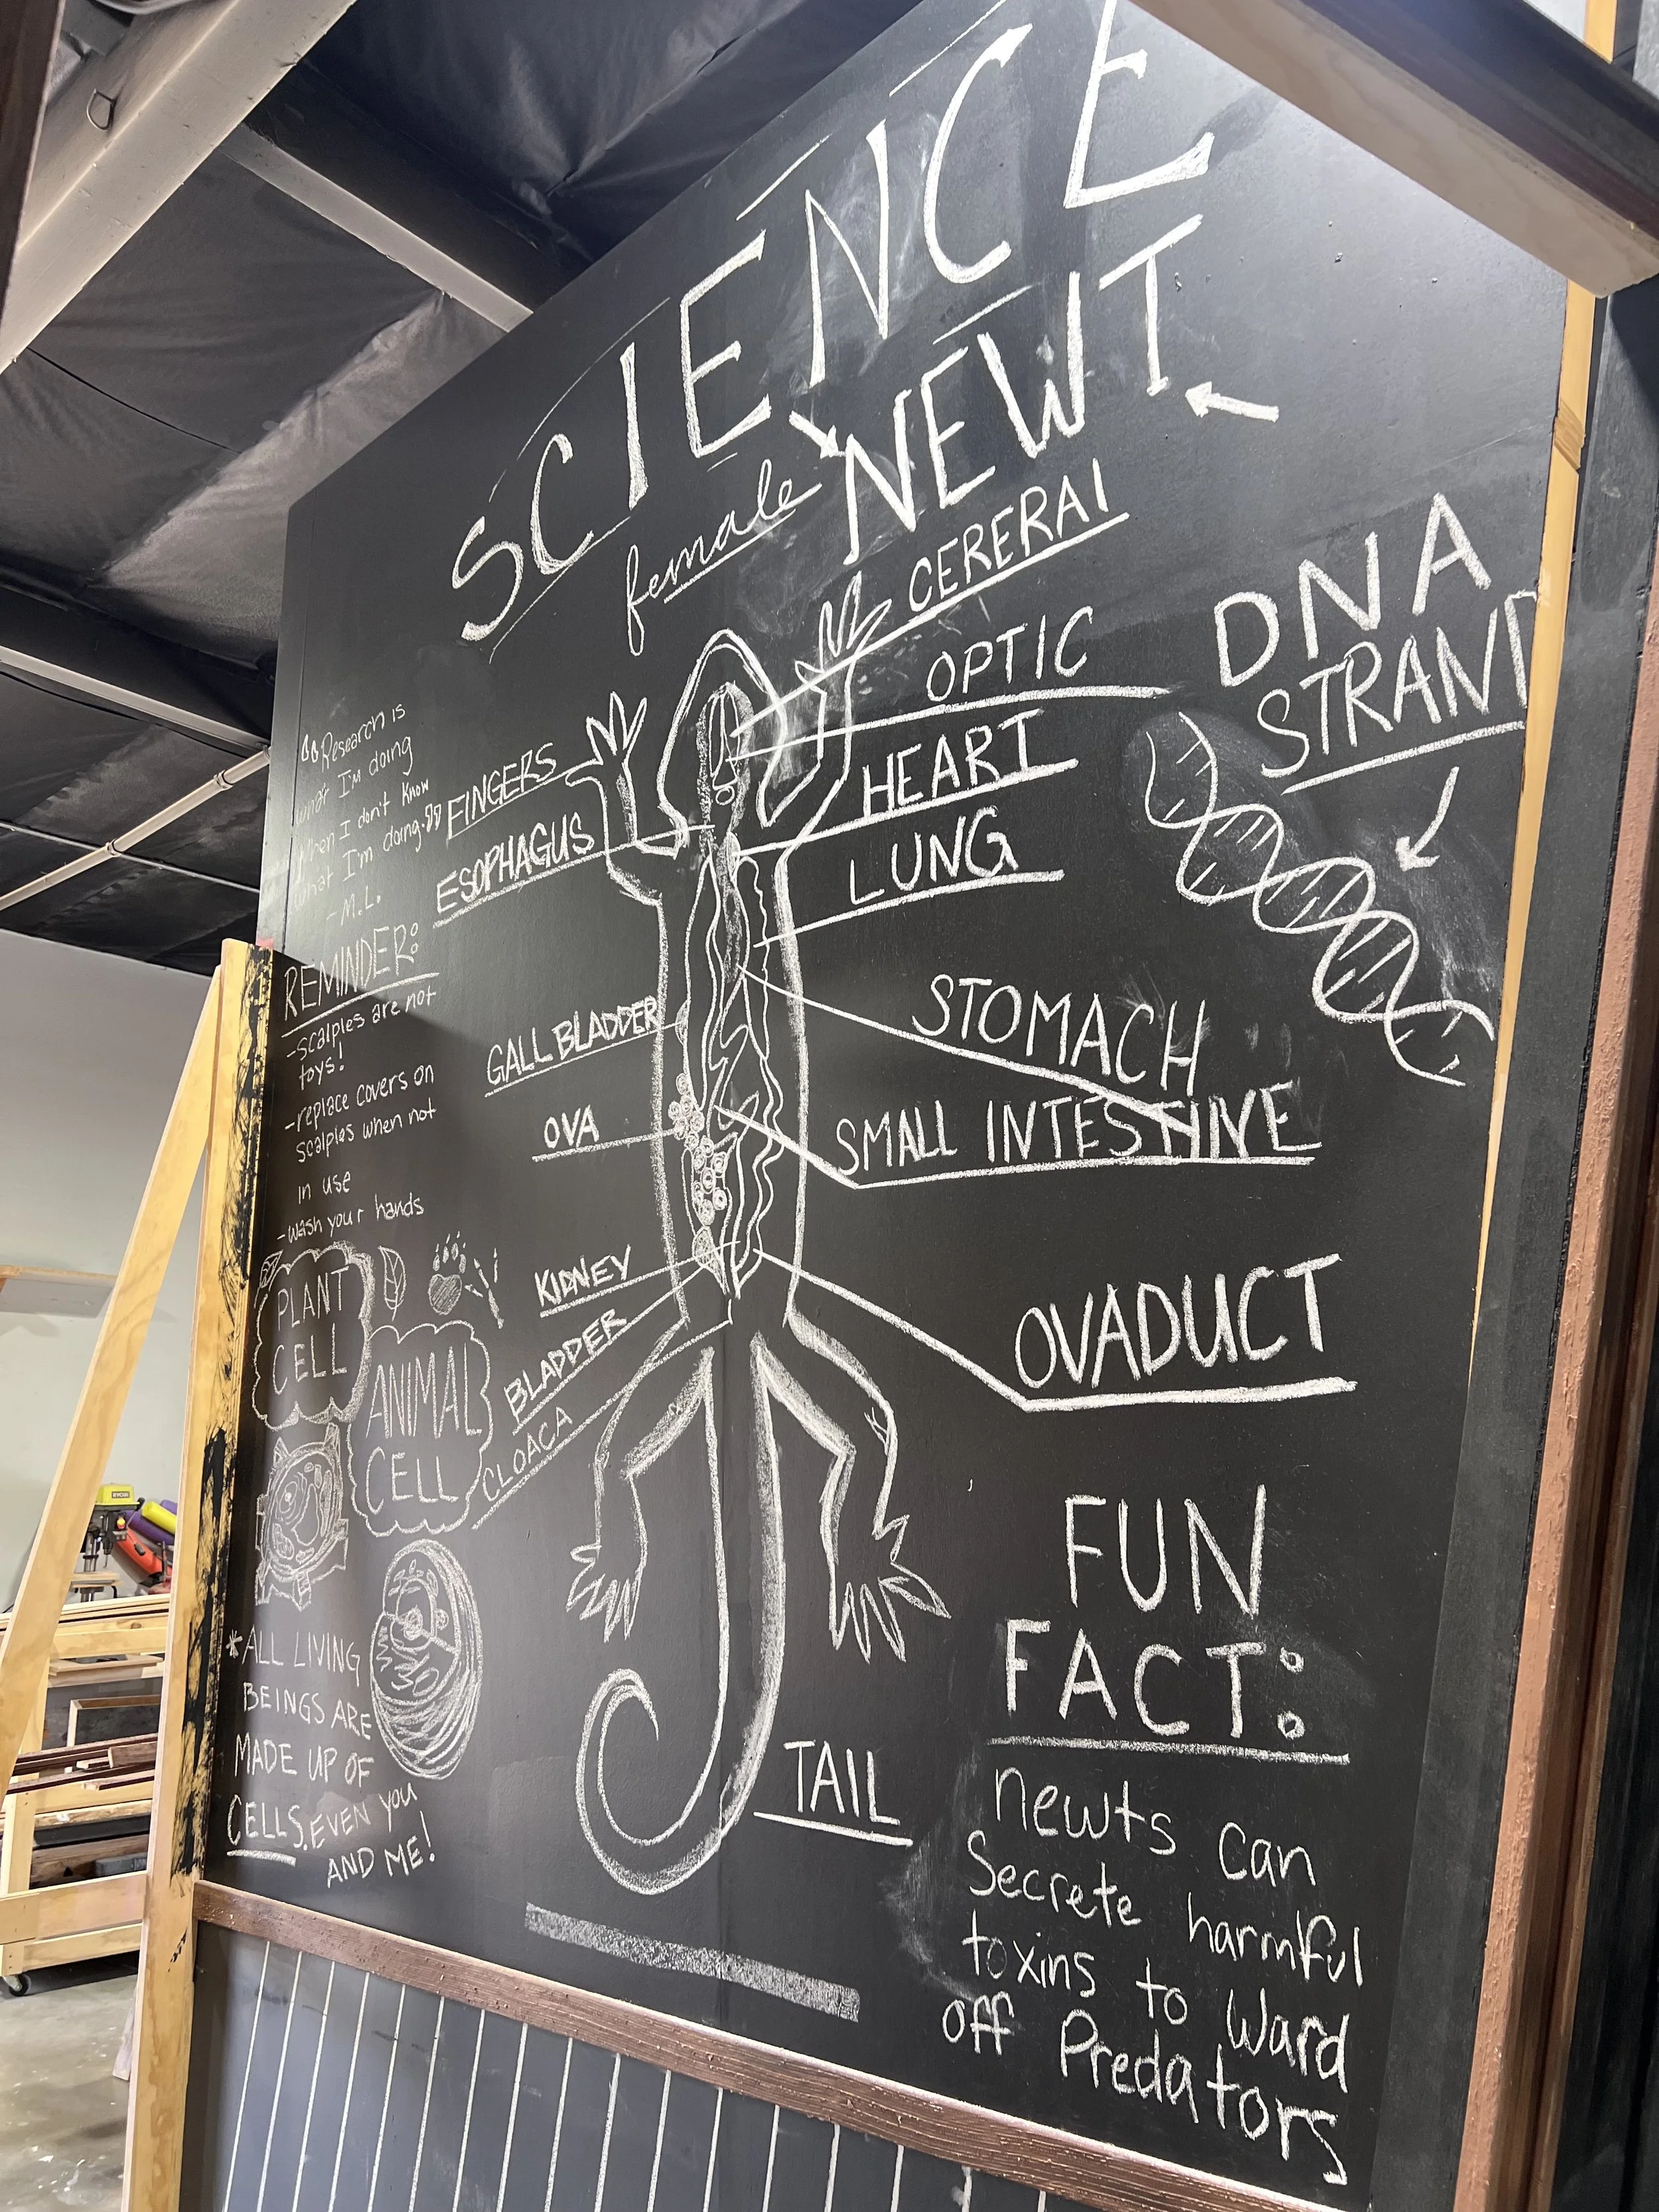 SCIENCE
female NEWT
CERERAl
OPTIC
HEART
LUNG
STOMACH
SMALL INTESTINE
OVADUCT
TAIL
FINGERS
ESOPHAGUS
GALL BLADDER
OVA
KIDNEY
BLADDER
CLOACA
"Research is
what I'm doing
when I don't know
what I'm doing."
- M.L.
REMINDER:
-scalples are not
toys!
-replace covers on
scalples when not
in use
-wash your hands
PLANT
CELL
ANIMAL
CELL
*ALL LIVING
BEINGS ARE
MADE UP OF
CELLS, EVEN YOU
AND ME!
DNA
STRAND
FUN
FACT:
newts can
Secrete harmful
toxins to Ward
off Predators
RYOBI